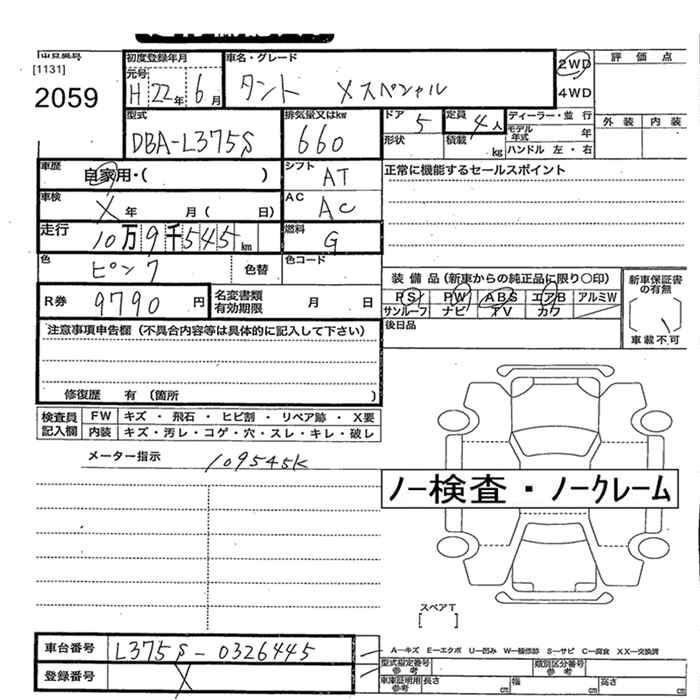 [1131]
2059
初度登録年月
元号
H 22年 6月
車名・グレード
タント Xスペシャル
2WD
4WD
評価点
外装 内装
型式
DBA-L375S
排気量又はkw
660
ドア 5
形状
定員 4人
積載 kg
ディーラー・並行
モデル年式 年
ハンドル 左・右
車歴
自家用・( )
シフト AT
正常に機能するセールスポイント
車検
X 年 月( 日)
AC AC
走行
10万9千545km
燃料 G
色 ピンク 色替
色コード
R券 9790円
名変書類有効期限 月 日
装備品(新車からの純正品に限り○印)
PS PW ABS エアB アルミW
サンルーフ ナビ TV カワ
後日品
新車保証書の有無
車載不可
注意事項申告欄(不具合内容等は具体的に記入して下さい)
修復歴 有(箇所 )
検査員記入欄
FW キズ・飛石・ヒビ割・リペア跡・X要
内装 キズ・汚レ・コゲ・穴・スレ・キレ・破レ
メーター指示 109545K
ノー検査・ノークレーム
スペアT
[ ]
車台番号 L375S-0326445
登録番号 X
A−キズ E−エクボ U−凹み W−補修跡 S−サビ C−腐食 XX−交換済
型式指定番号 参考
類別区分番号 参考
車庫証明用参考 長さ cm 幅 cm 高さ cm